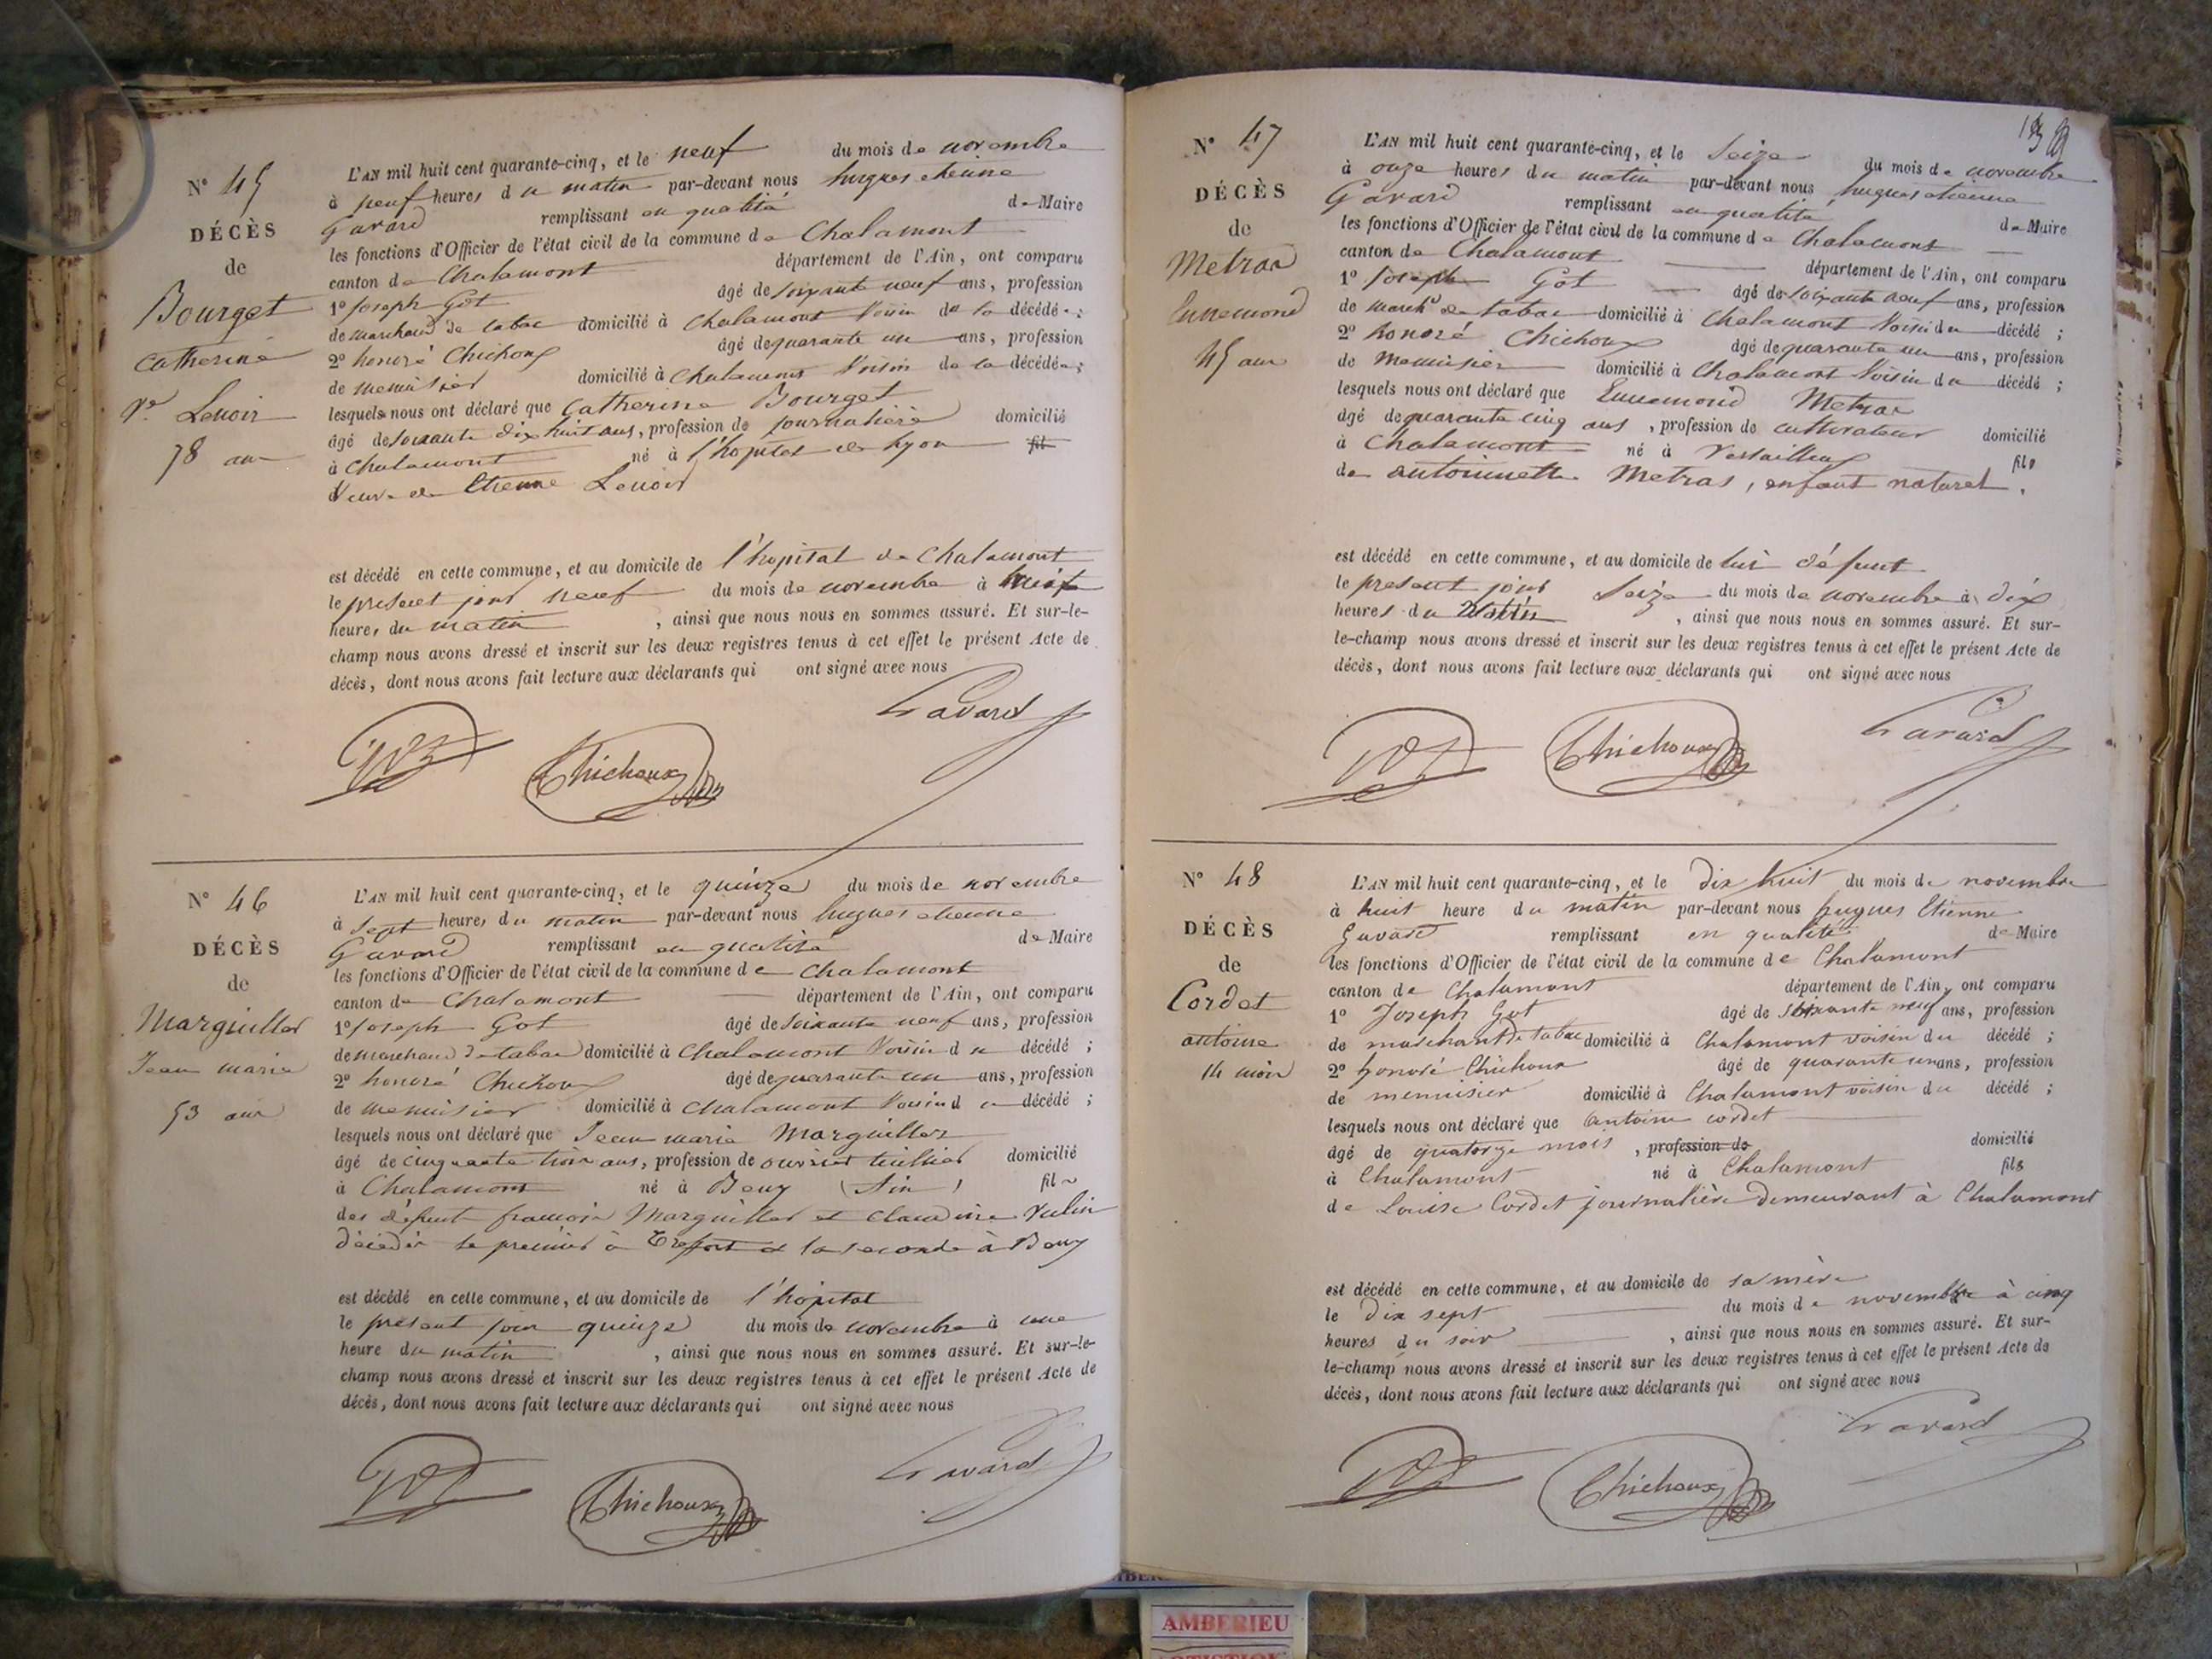 N° 45
DÉCÈS
de
Bourget
Catherine
Ve Lenoir
78 ans
L'AN mil huit cent quarante-cinq, et le neuf du mois de novembre
à neuf heures du matin par-devant nous hugues etienne
Gavard remplissant en qualité de Maire
les fonctions d'Officier de l'état civil de la commune de Chalamont
canton de Chalamont département de l'Ain, ont comparu
1° Joseph Got âgé de soixante neuf ans, profession
de marchand de tabac domicilié à Chalamont Voisin de la décédée ;
2° honoré Chichoux âgé de quarante un ans, profession
de menuisier domicilié à Chalamont Voisin de la décédée ;
lesquels nous ont déclaré que Catherine Bourget
âgé de soixante dix huit ans, profession de journalière domicilié
à Chalamont né à l'hopital de Lyon fil
Veuve de Etienne Lenoir
est décédé en cette commune, et au domicile de l'hopital de Chalamont
le present jour neuf du mois de novembre à
heures du matin , ainsi que nous nous en sommes assuré. Et sur-le-
champ nous avons dressé et inscrit sur les deux registres tenus à cet effet le présent Acte de
décès, dont nous avons fait lecture aux déclarants qui ont signé avec nous
Got Chichoux Gavard
N° 46
DÉCÈS
de
Marguiller
Jean marie
53 ans
L'AN mil huit cent quarante-cinq, et le quinze du mois de novembre
à sept heures du matin par-devant nous hugues etienne
Gavard remplissant en qualité de Maire
les fonctions d'Officier de l'état civil de la commune de Chalamont
canton de Chalamont département de l'Ain, ont comparu
1° Joseph Got âgé de soixante neuf ans, profession
de marchand de tabac domicilié à Chalamont Voisin du décédé ;
2° honoré Chichoux âgé de quarante un ans, profession
de menuisier domicilié à Chalamont Voisin du décédé ;
lesquels nous ont déclaré que Jean marie Marguiller
âgé de cinquante trois ans, profession de ouvrier tuillier domicilié
à Chalamont né à Beny (Ain) fils
des défunt françois Marguiller et Claudine Vulin
décédés le premier à Treffort et la seconde à Beny
est décédé en cette commune, et au domicile de l'hôpital
le présent jour quinze du mois de novembre à une
heure du matin , ainsi que nous nous en sommes assuré. Et sur-le-
champ nous avons dressé et inscrit sur les deux registres tenus à cet effet le présent Acte de
décès, dont nous avons fait lecture aux déclarants qui ont signé avec nous
Got Chichoux Gavard
N° 47
DÉCÈS
de
Metras
Ennemond
45 ans
L'AN mil huit cent quarante-cinq, et le Seize du mois de novembre
à onze heures du matin par-devant nous hugues etienne
Gavard remplissant en qualité de Maire
les fonctions d'Officier de l'état civil de la commune de Chalamont
canton de Chalamont département de l'Ain, ont comparu
1° Joseph Got âgé de soixante neuf ans, profession
de march^d de tabac domicilié à Chalamont Voisin du décédé ;
2° honoré Chichoux âgé de quarante un ans, profession
de Menuisier domicilié à Chalamont Voisin du décédé ;
lesquels nous ont déclaré que Ennemond Metras
âgé de quarante cinq ans , profession de cultivateur domicilié
à Chalamont né à Versailleux fils
de antoinette Metras, enfant naturel.
est décédé en cette commune, et au domicile de lui défunt
le présent jour Seize du mois de novembre à dix
heures du Matin , ainsi que nous nous en sommes assuré. Et sur-
le-champ nous avons dressé et inscrit sur les deux registres tenus à cet effet le présent Acte de
décès, dont nous avons fait lecture aux déclarants qui ont signé avec nous
Got Chichoux Gavard
N° 48
DÉCÈS
de
Cordet
antoine
14 mois
L'AN mil huit cent quarante-cinq, et le Dix huit du mois de novembre
à huit heure du matin par-devant nous hugues Etienne
Gavard remplissant en qualité de Maire
les fonctions d'Officier de l'état civil de la commune de Chalamont
canton de Chalamont département de l'Ain, ont comparu
1° Joseph Got âgé de soixante neuf ans, profession
de marchant de tabac domicilié à Chalamont voisin du décédé ;
2° honoré Chichoux âgé de quarante un ans, profession
de menuisier domicilié à Chalamont voisin du décédé ;
lesquels nous ont déclaré que antoine cordet
âgé de quatorze mois , profession de domicilié
à Chalamont né à Chalamont fils
de Louise Cordet journalière demeurant à Chalamont
est décédé en cette commune, et au domicile de sa mère
le dix sept du mois de novembre à cinq
heures du soir , ainsi que nous nous en sommes assuré. Et sur-
le-champ nous avons dressé et inscrit sur les deux registres tenus à cet effet le présent Acte de
décès, dont nous avons fait lecture aux déclarants qui ont signé avec nous
Got Chichoux Gavard
AMBERIEU